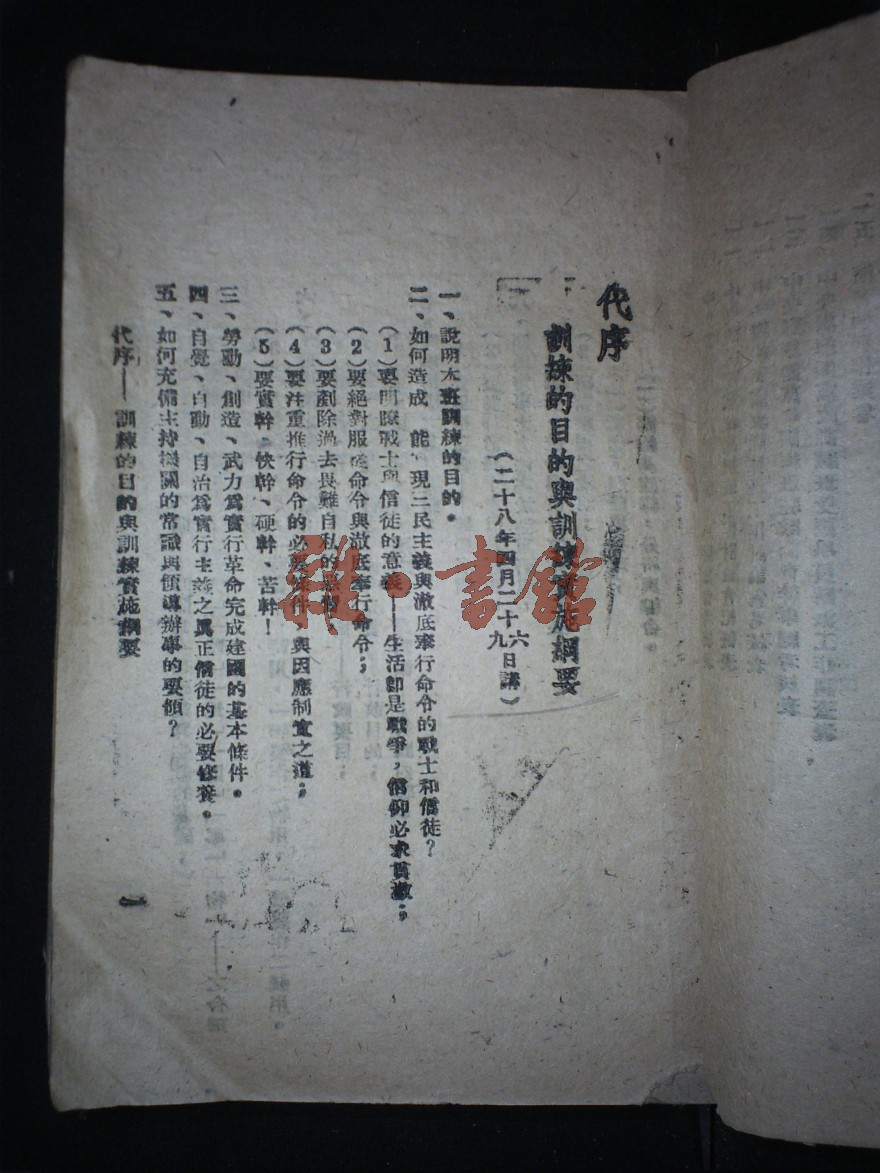 代序
訓練的目的與訓練實施綱要
（二十八年四月二十六九日講）
一、說明本班訓練的目的。
二、如何造成 能 現三民主義與澈底奉行命令的戰士和信徒？
（1）要明瞭戰士與信徒的意義——生活卽是戰爭，信仰必求貫澈；
（2）要絕對服從命令與澈底奉行命令；
（3）要剷除過去畏難自私的
（4）要注重推行命令的必要條件，與因應制宜之道；
（5）要實幹、快幹、硬幹、苦幹！
三、勞動、創造、武力爲實行革命完成建國的基本條件。
四、自覺、自動、自治爲實行主義之眞正信徒的必要修養。
五、如何充備主持機關的常識與領導辦事的要領？
代序——訓練的目的與訓練實施綱要
一
雜·書館